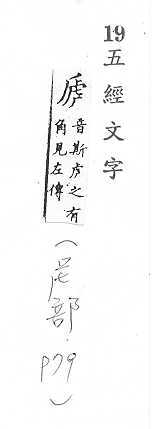 19
五經文字
虒
音斯虎之有
角見左傳
(虍部.P79)